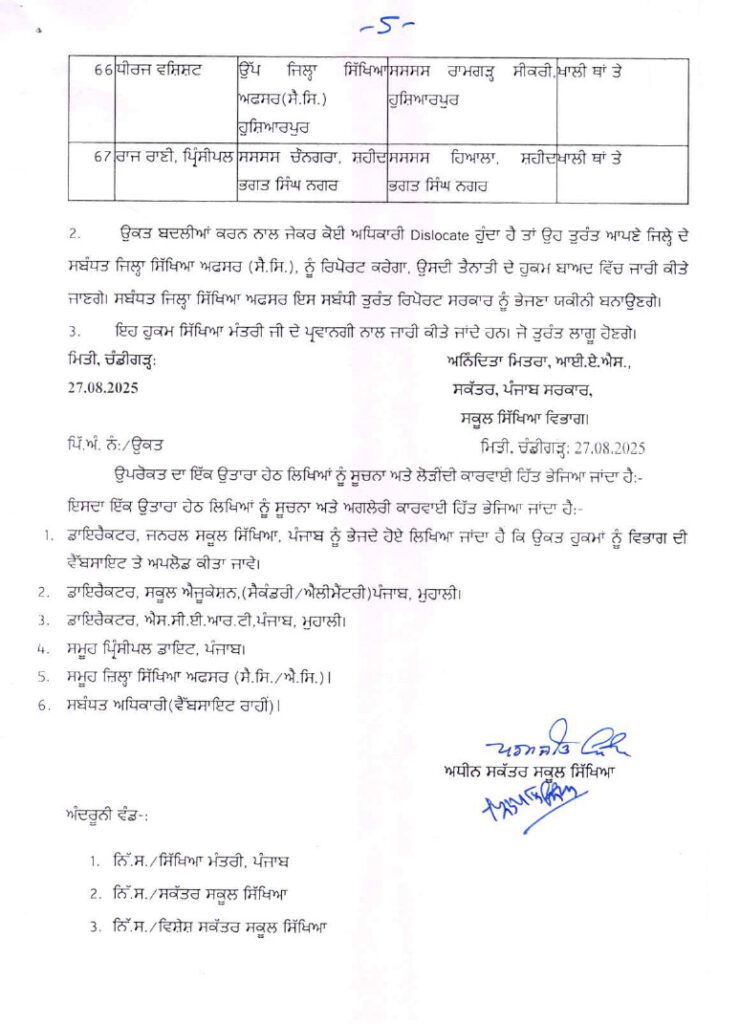 -5-
66 ਧੀਰਜ ਵਸ਼ਿਸ਼ਟ ਉੱਪ ਜਿਲ੍ਹਾ ਸਿੱਖਿਆ ਸਸਸਸ ਰਾਮਗੜ੍ਹ ਸੀਕਰੀ, ਖਾਲੀ ਥਾਂ ਤੇ
ਅਫਸਰ(ਸੈ.ਸਿ.) ਹੁਸ਼ਿਆਰਪੁਰ
ਹੁਸ਼ਿਆਰਪੁਰ
67 ਰਾਜ ਰਾਣੀ, ਪ੍ਰਿੰਸੀਪਲ ਸਸਸਸ ਚੌਨਗਰਾ, ਸ਼ਹੀਦ ਸਸਸਸ ਹਿਆਲਾ, ਸ਼ਹੀਦ ਖਾਲੀ ਥਾਂ ਤੇ
ਭਗਤ ਸਿੰਘ ਨਗਰ ਭਗਤ ਸਿੰਘ ਨਗਰ
2. ਉਕਤ ਬਦਲੀਆਂ ਕਰਨ ਨਾਲ ਜੇਕਰ ਕੋਈ ਅਧਿਕਾਰੀ Dislocate ਹੁੰਦਾ ਹੈ ਤਾਂ ਉਹ ਤੁਰੰਤ ਆਪਣੇ ਜਿਲ੍ਹੇ ਦੇ
ਸਬੰਧਤ ਜਿਲ੍ਹਾ ਸਿੱਖਿਆ ਅਫਸਰ (ਸੈ.ਸਿ.), ਨੂੰ ਰਿਪੋਰਟ ਕਰੇਗਾ, ਉਸਦੀ ਤੈਨਾਤੀ ਦੇ ਹੁਕਮ ਬਾਅਦ ਵਿੱਚ ਜਾਰੀ ਕੀਤੇ
ਜਾਣਗੇ। ਸਬੰਧਤ ਜਿਲ੍ਹਾ ਸਿੱਖਿਆ ਅਫਸਰ ਇਸ ਸਬੰਧੀ ਤੁਰੰਤ ਰਿਪੋਰਟ ਸਰਕਾਰ ਨੂੰ ਭੇਜਣਾ ਯਕੀਨੀ ਬਨਾਉਣਗੇ।
3. ਇਹ ਹੁਕਮ ਸਿੱਖਿਆ ਮੰਤਰੀ ਜੀ ਦੇ ਪ੍ਰਵਾਨਗੀ ਨਾਲ ਜਾਰੀ ਕੀਤੇ ਜਾਂਦੇ ਹਨ। ਜੋ ਤੁਰੰਤ ਲਾਗੂ ਹੋਣਗੇ।
ਮਿਤੀ, ਚੰਡੀਗੜ੍ਹ: ਅਨਿੰਦਿਤਾ ਮਿਤਰਾ, ਆਈ.ਏ.ਐਸ.,
27.08.2025 ਸਕੱਤਰ, ਪੰਜਾਬ ਸਰਕਾਰ,
ਸਕੂਲ ਸਿੱਖਿਆ ਵਿਭਾਗ।
ਪਿੱ.ਅੰ. ਨੰ:/ਉਕਤ ਮਿਤੀ, ਚੰਡੀਗੜ੍ਹ: 27.08.2025
ਉਪਰੋਕਤ ਦਾ ਇੱਕ ਉਤਾਰਾ ਹੇਠ ਲਿਖਿਆਂ ਨੂੰ ਸੂਚਨਾ ਅਤੇ ਲੋੜੀਂਦੀ ਕਾਰਵਾਈ ਹਿੱਤ ਭੇਜਿਆ ਜਾਂਦਾ ਹੈ:-
ਇਸਦਾ ਇੱਕ ਉਤਾਰਾ ਹੇਠ ਲਿਖਿਆਂ ਨੂੰ ਸੂਚਨਾ ਅਤੇ ਅਗਲੇਰੀ ਕਾਰਵਾਈ ਹਿੱਤ ਭੇਜਿਆ ਜਾਂਦਾ ਹੈ:-
1. ਡਾਇਰੈਕਟਰ, ਜਨਰਲ ਸਕੂਲ ਸਿੱਖਿਆ, ਪੰਜਾਬ ਨੂੰ ਭੇਜਦੇ ਹੋਏ ਲਿਖਿਆ ਜਾਂਦਾ ਹੈ ਕਿ ਉਕਤ ਹੁਕਮਾਂ ਨੂੰ ਵਿਭਾਗ ਦੀ
ਵੈੱਬਸਾਇਟ ਤੇ ਅਪਲੋਡ ਕੀਤਾ ਜਾਵੇ।
2. ਡਾਇਰੈਕਟਰ, ਸਕੂਲ ਐਜੂਕੇਸ਼ਨ,(ਸੈਕੰਡਰੀ/ਐਲੀਮੈਂਟਰੀ)ਪੰਜਾਬ, ਮੁਹਾਲੀ।
3. ਡਾਇਰੈਕਟਰ, ਐਸ.ਸੀ.ਈ.ਆਰ.ਟੀ,ਪੰਜਾਬ, ਮੁਹਾਲੀ।
4. ਸਮੂਹ ਪ੍ਰਿੰਸੀਪਲ ਡਾਇਟ, ਪੰਜਾਬ।
5. ਸਮੂਹ ਜਿਲ੍ਹਾ ਸਿੱਖਿਆ ਅਫਸਰ (ਸੈ.ਸਿ./ਐ.ਸਿ.)।
6. ਸਬੰਧਤ ਅਧਿਕਾਰੀ(ਵੈੱਬਸਾਇਟ ਰਾਹੀਂ)।
ਅਧੀਨ ਸਕੱਤਰ ਸਕੂਲ ਸਿੱਖਿਆ
ਅੰਦਰੂਨੀ ਵੰਡ-:
1. ਨਿੱ.ਸ./ਸਿੱਖਿਆ ਮੰਤਰੀ, ਪੰਜਾਬ
2. ਨਿੱ.ਸ./ਸਕੱਤਰ ਸਕੂਲ ਸਿੱਖਿਆ
3. ਨਿੱ.ਸ./ਵਿਸ਼ੇਸ਼ ਸਕੱਤਰ ਸਕੂਲ ਸਿੱਖਿਆ